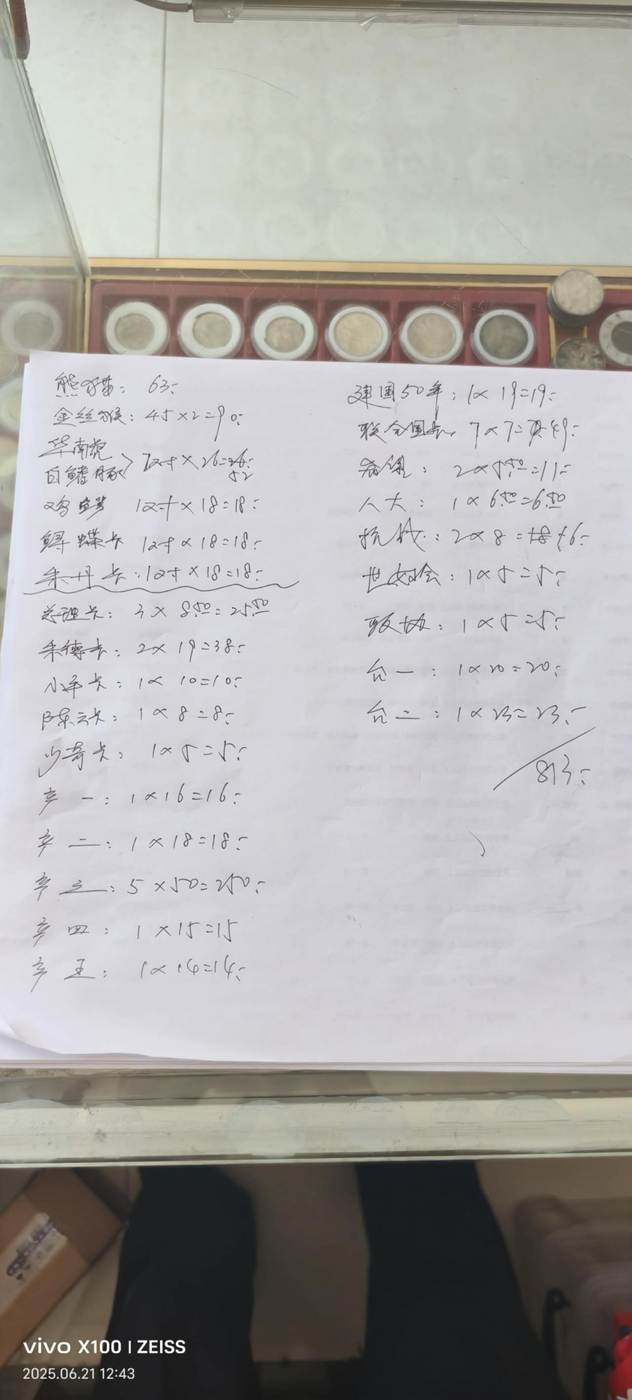 熊猫：63：
金丝猴：45×2=90：
华南虎
白鳍豚 > 1对×26=26：
52
鸡 1对×18=18：
蝶卡 1对×18=18：
朱丹卡：1对×18=18：
总理卡：3×8.50=25.50
朱德卡：2×19=38：
小平卡：1×10=10：
陈云卡：1×8=8：
少奇卡：1×5=5：
辛一：1×16=16：
辛二：1×18=18：
辛三：5×50=250：
辛四：1×15=15
辛五：1×14=14：
建国50年：1×19=19：
联合国卡：7×7=49：
希望：2×5.50=11：
人大：1×6.50=6.50
抗战：2×8=16：
世妇会：1×5=5：
1×5=5：
台一：1×20=20：
台二：1×23=23：
813：
vivo X100 | ZEISS
2025.06.21 12:43